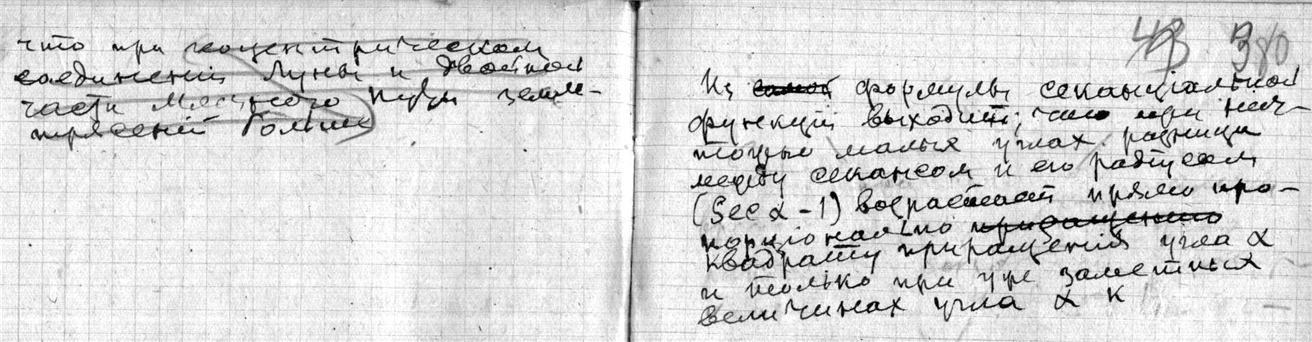 что при геоцентрическом
соединенiи Луны и двойной
части Млечного Пути земле-
трясенiй больше
380
Из самой формулы секансiальной
функцiи выходит, что при нич-
тожно малых углах разница
между секансом и его радiусом
(Sec α - 1) возрастает прямо про-
порцiонально приращенiю
квадрату приращенiя угла α
и только при уже заметных
величинах угла α к